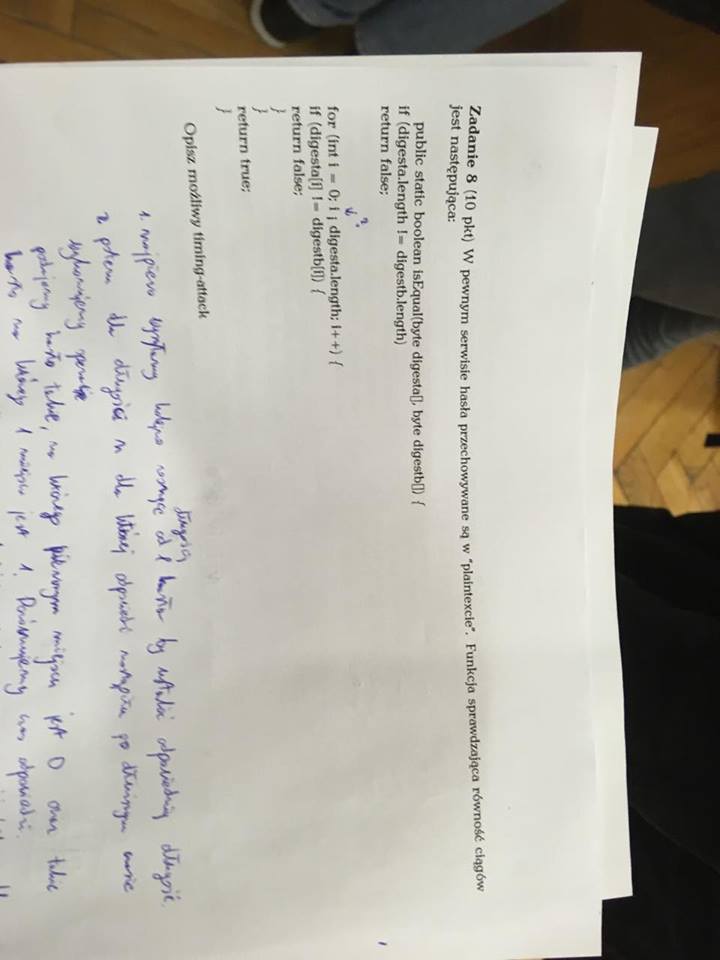 Zadanie 8 (10 pkt) W pewnym serwisie hasła przechowywane są w "plaintexcie". Funkcja sprawdzająca równość ciągów
jest następująca:
public static boolean isEqual(byte digesta[], byte digestb[]) {
if (digesta.length != digestb.length)
return false;
?
for (int i = 0; i ¡ digesta.length; i++) {
if (digesta[i] != digestb[i]) {
return false;
}
}
return true;
}
Opisz możliwy timing-attack
długością
1. najpierw wysyłamy kolejno rosnące od 1 hasła by ustalić odpowiednią długość.
2 potem dla długości n dla której odpowiedź nastąpiła po dłuższym czasie
wykonujemy operacje
podajemy hasło takie, na którego pierwszym miejscu jest 0 oraz takie
hasło na którego 1 miejscu jest 1. Porównujemy czas odpowiedzi.